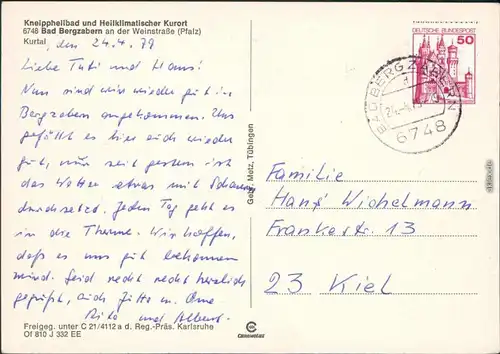 Kneippheilbad und Heilklimatischer Kurort
6748 Bad Bergzabern an der Weinstraße (Pfalz)
Kurtal, den 24.4.79
Liebe Tuti und Hans!
Nun sind wir wieder gut in
Bergzabern angekommen. Uns
gefällt es hier auch wieder
gut, nur seit gestern ist
das Wetter etwas mit Schauern
durchsetzt. Jeden Tag geht es
in die Therme. Wir hoffen,
daß es uns gut bekommen
wird. Seid recht recht herzlich
gegrüßt, auch Jutta u. Arne
Rita und Albert.
Freigeg. unter C 21/4112 a d. Reg.-Präs. Karlsruhe
Of 810 J 332 EE
Gebr. Metz, Tübingen
DEUTSCHE BUNDESPOST
50
BAD BERGZABERN
6748
Familie
Hans Wichelmann
Frankestr. 13
23 Kiel